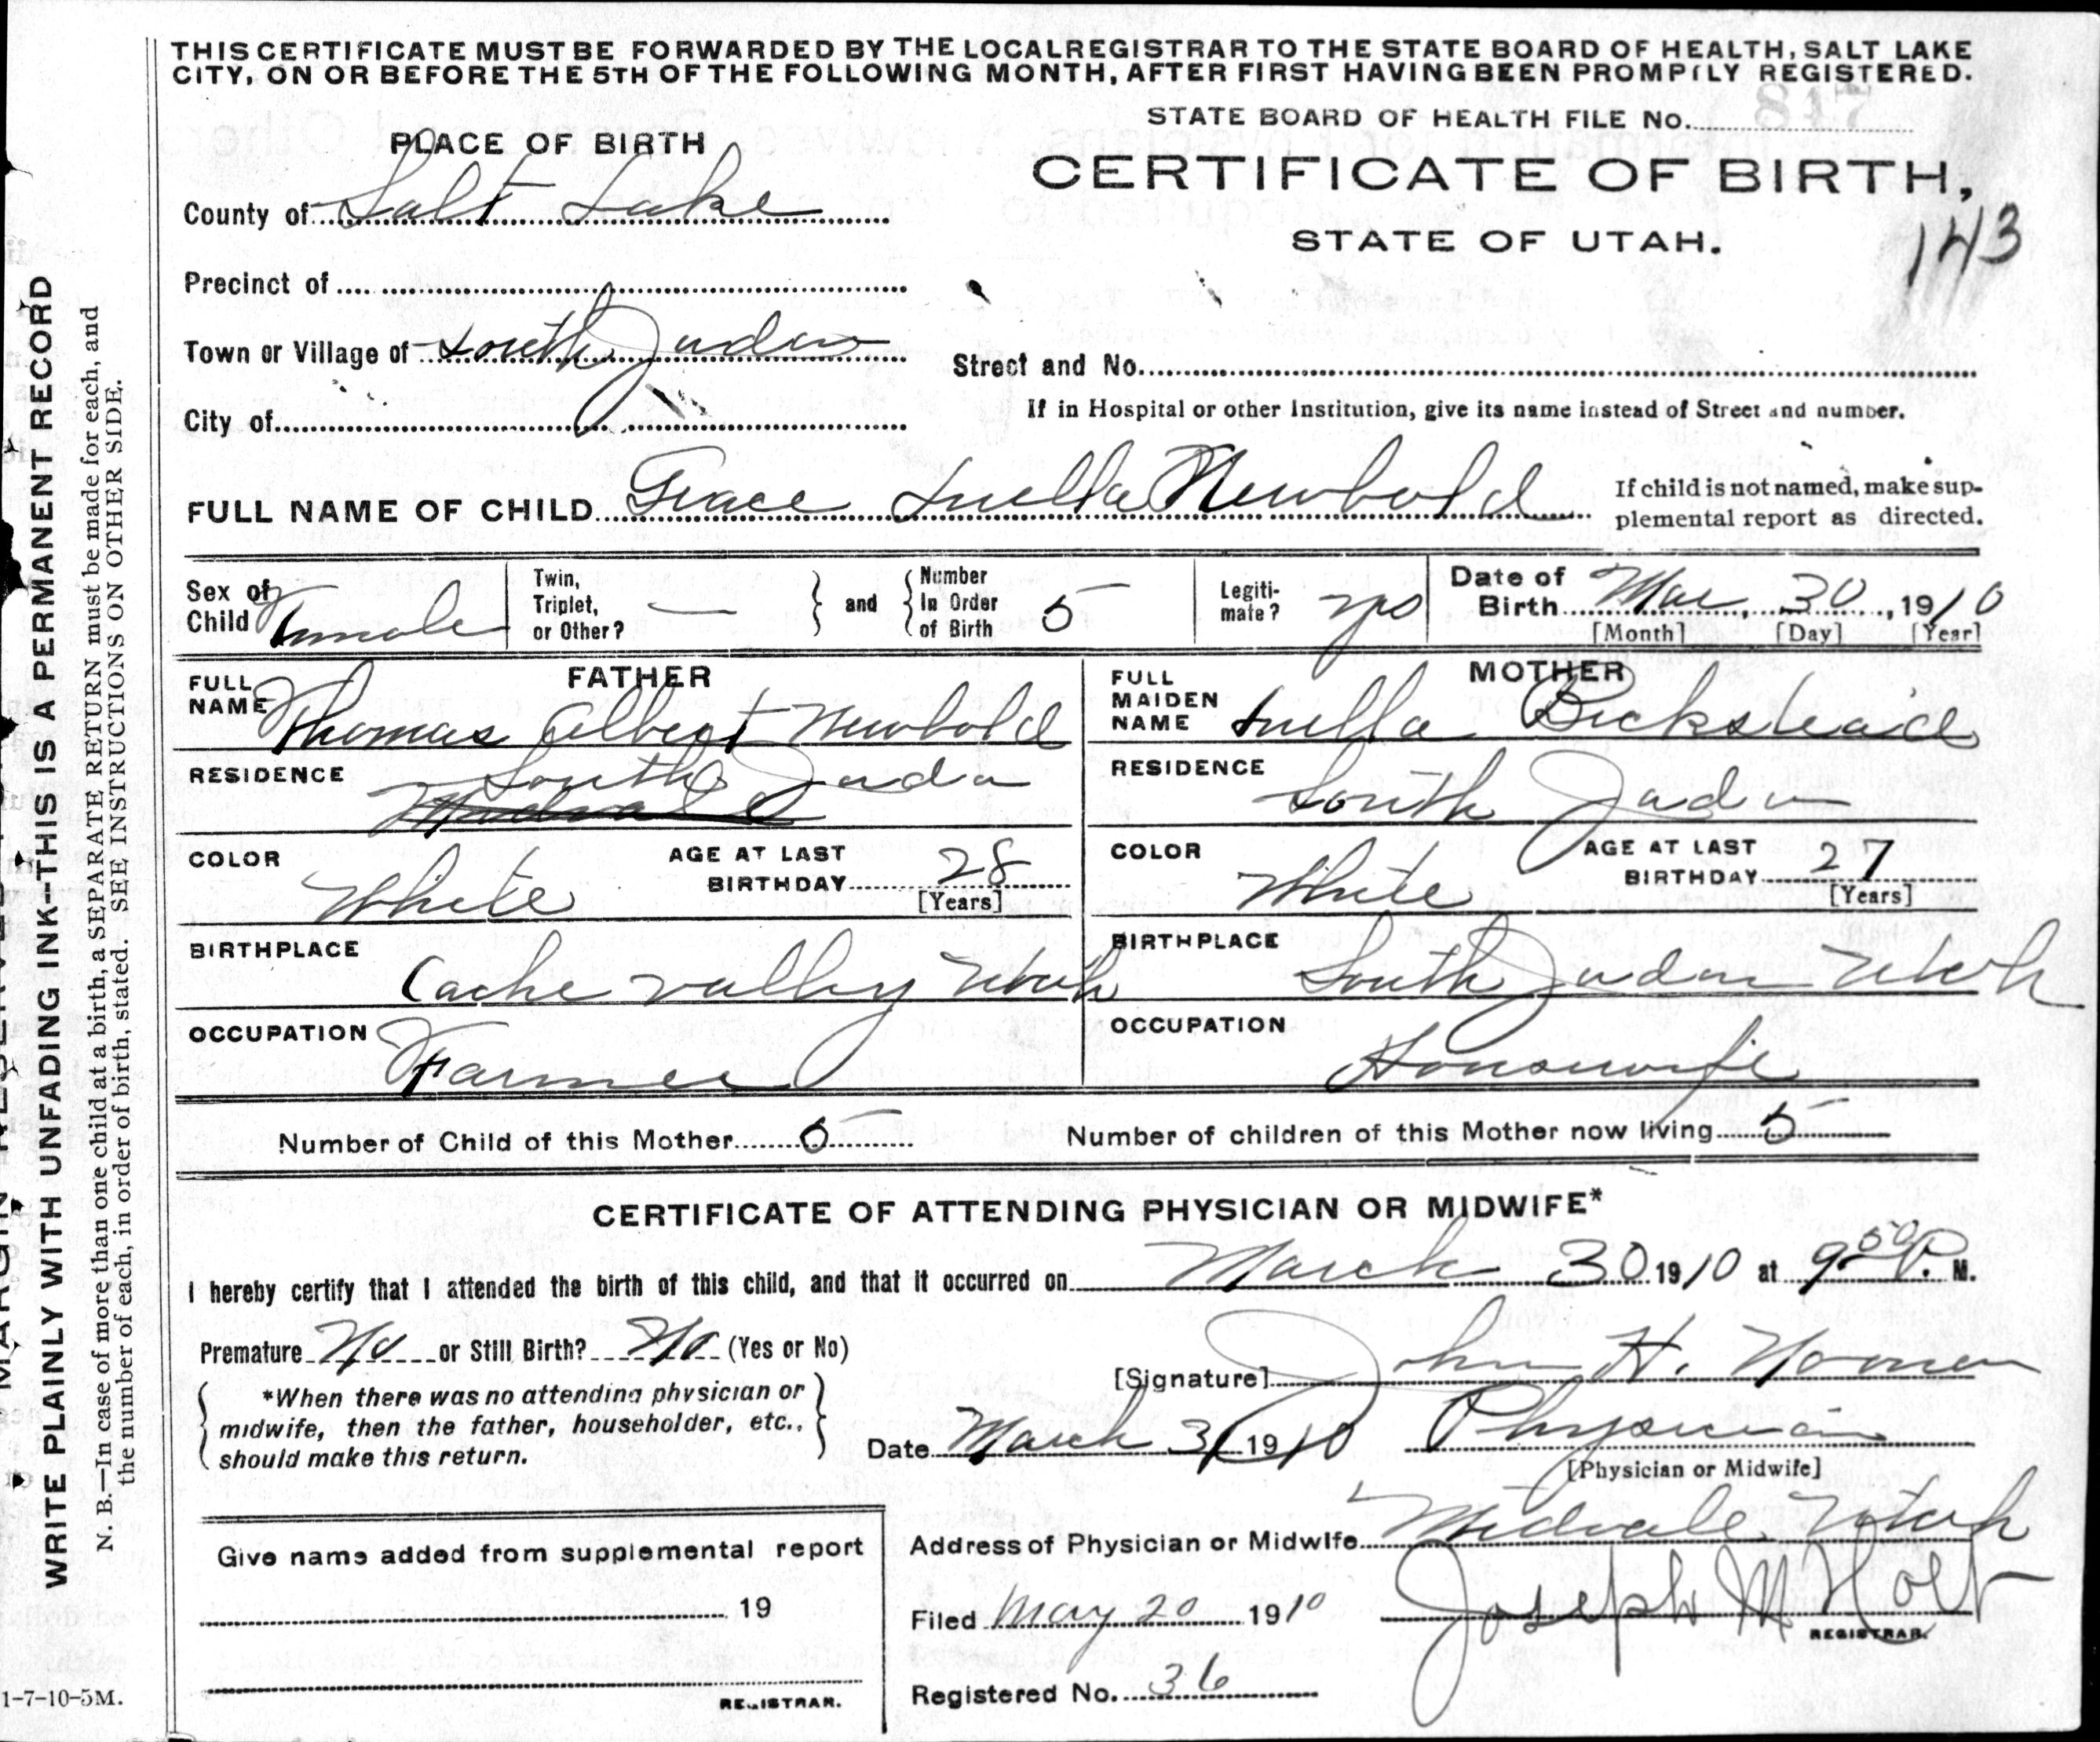 THIS CERTIFICATE MUST BE FORWARDED BY THE LOCAL REGISTRAR TO THE STATE BOARD OF HEALTH, SALT LAKE
CITY, ON OR BEFORE THE 5TH OF THE FOLLOWING MONTH, AFTER FIRST HAVING BEEN PROMPTLY REGISTERED.
STATE BOARD OF HEALTH FILE No.
PLACE OF BIRTH
CERTIFICATE OF BIRTH,
STATE OF UTAH.
143
County of Salt Lake
Precinct of
Town or Village of South Jordan
Street and No.
City of
If in Hospital or other Institution, give its name instead of Street and number.
FULL NAME OF CHILD Grace Luella Newbold
If child is not named, make sup-
plemental report as directed.
Sex of Child Female
Twin, Triplet, or Other? —
and
Number In Order of Birth 5
Legiti-mate? yes
Date of Birth Mar 30, 1910
[Month] [Day] [Year]
FATHER
FULL NAME Thomas Albert Newbold
RESIDENCE South Jordan
Midvale
COLOR White
AGE AT LAST BIRTHDAY 28
[Years]
BIRTHPLACE Cache valley Utah
OCCUPATION Farmer
MOTHER
FULL MAIDEN NAME Luella Beckstead
RESIDENCE South Jordan
COLOR White
AGE AT LAST BIRTHDAY 27
[Years]
BIRTHPLACE South Jordan Utah
OCCUPATION Housewife
Number of Child of this Mother 5
Number of children of this Mother now living 5
CERTIFICATE OF ATTENDING PHYSICIAN OR MIDWIFE*
I hereby certify that I attended the birth of this child, and that it occurred on March 30 1910 at 9 50 P. M.
Premature No or Still Birth? No (Yes or No)
[Signature] John H.
*When there was no attending physician or
midwife, then the father, householder, etc.,
should make this return.
Date March 31 1910
Physician
[Physician or Midwife]
Give name added from supplemental report
19
REGISTRAR.
Address of Physician or Midwife Midvale Utah
Filed May 20 1910
Joseph M Holt
REGISTRAR.
Registered No. 36
WRITE PLAINLY WITH UNFADING INK--THIS IS A PERMANENT RECORD
N. B.—In case of more than one child at a birth, a SEPARATE RETURN must be made for each, and
the number of each, in order of birth, stated. SEE INSTRUCTIONS ON OTHER SIDE.
1-7-10-5M.